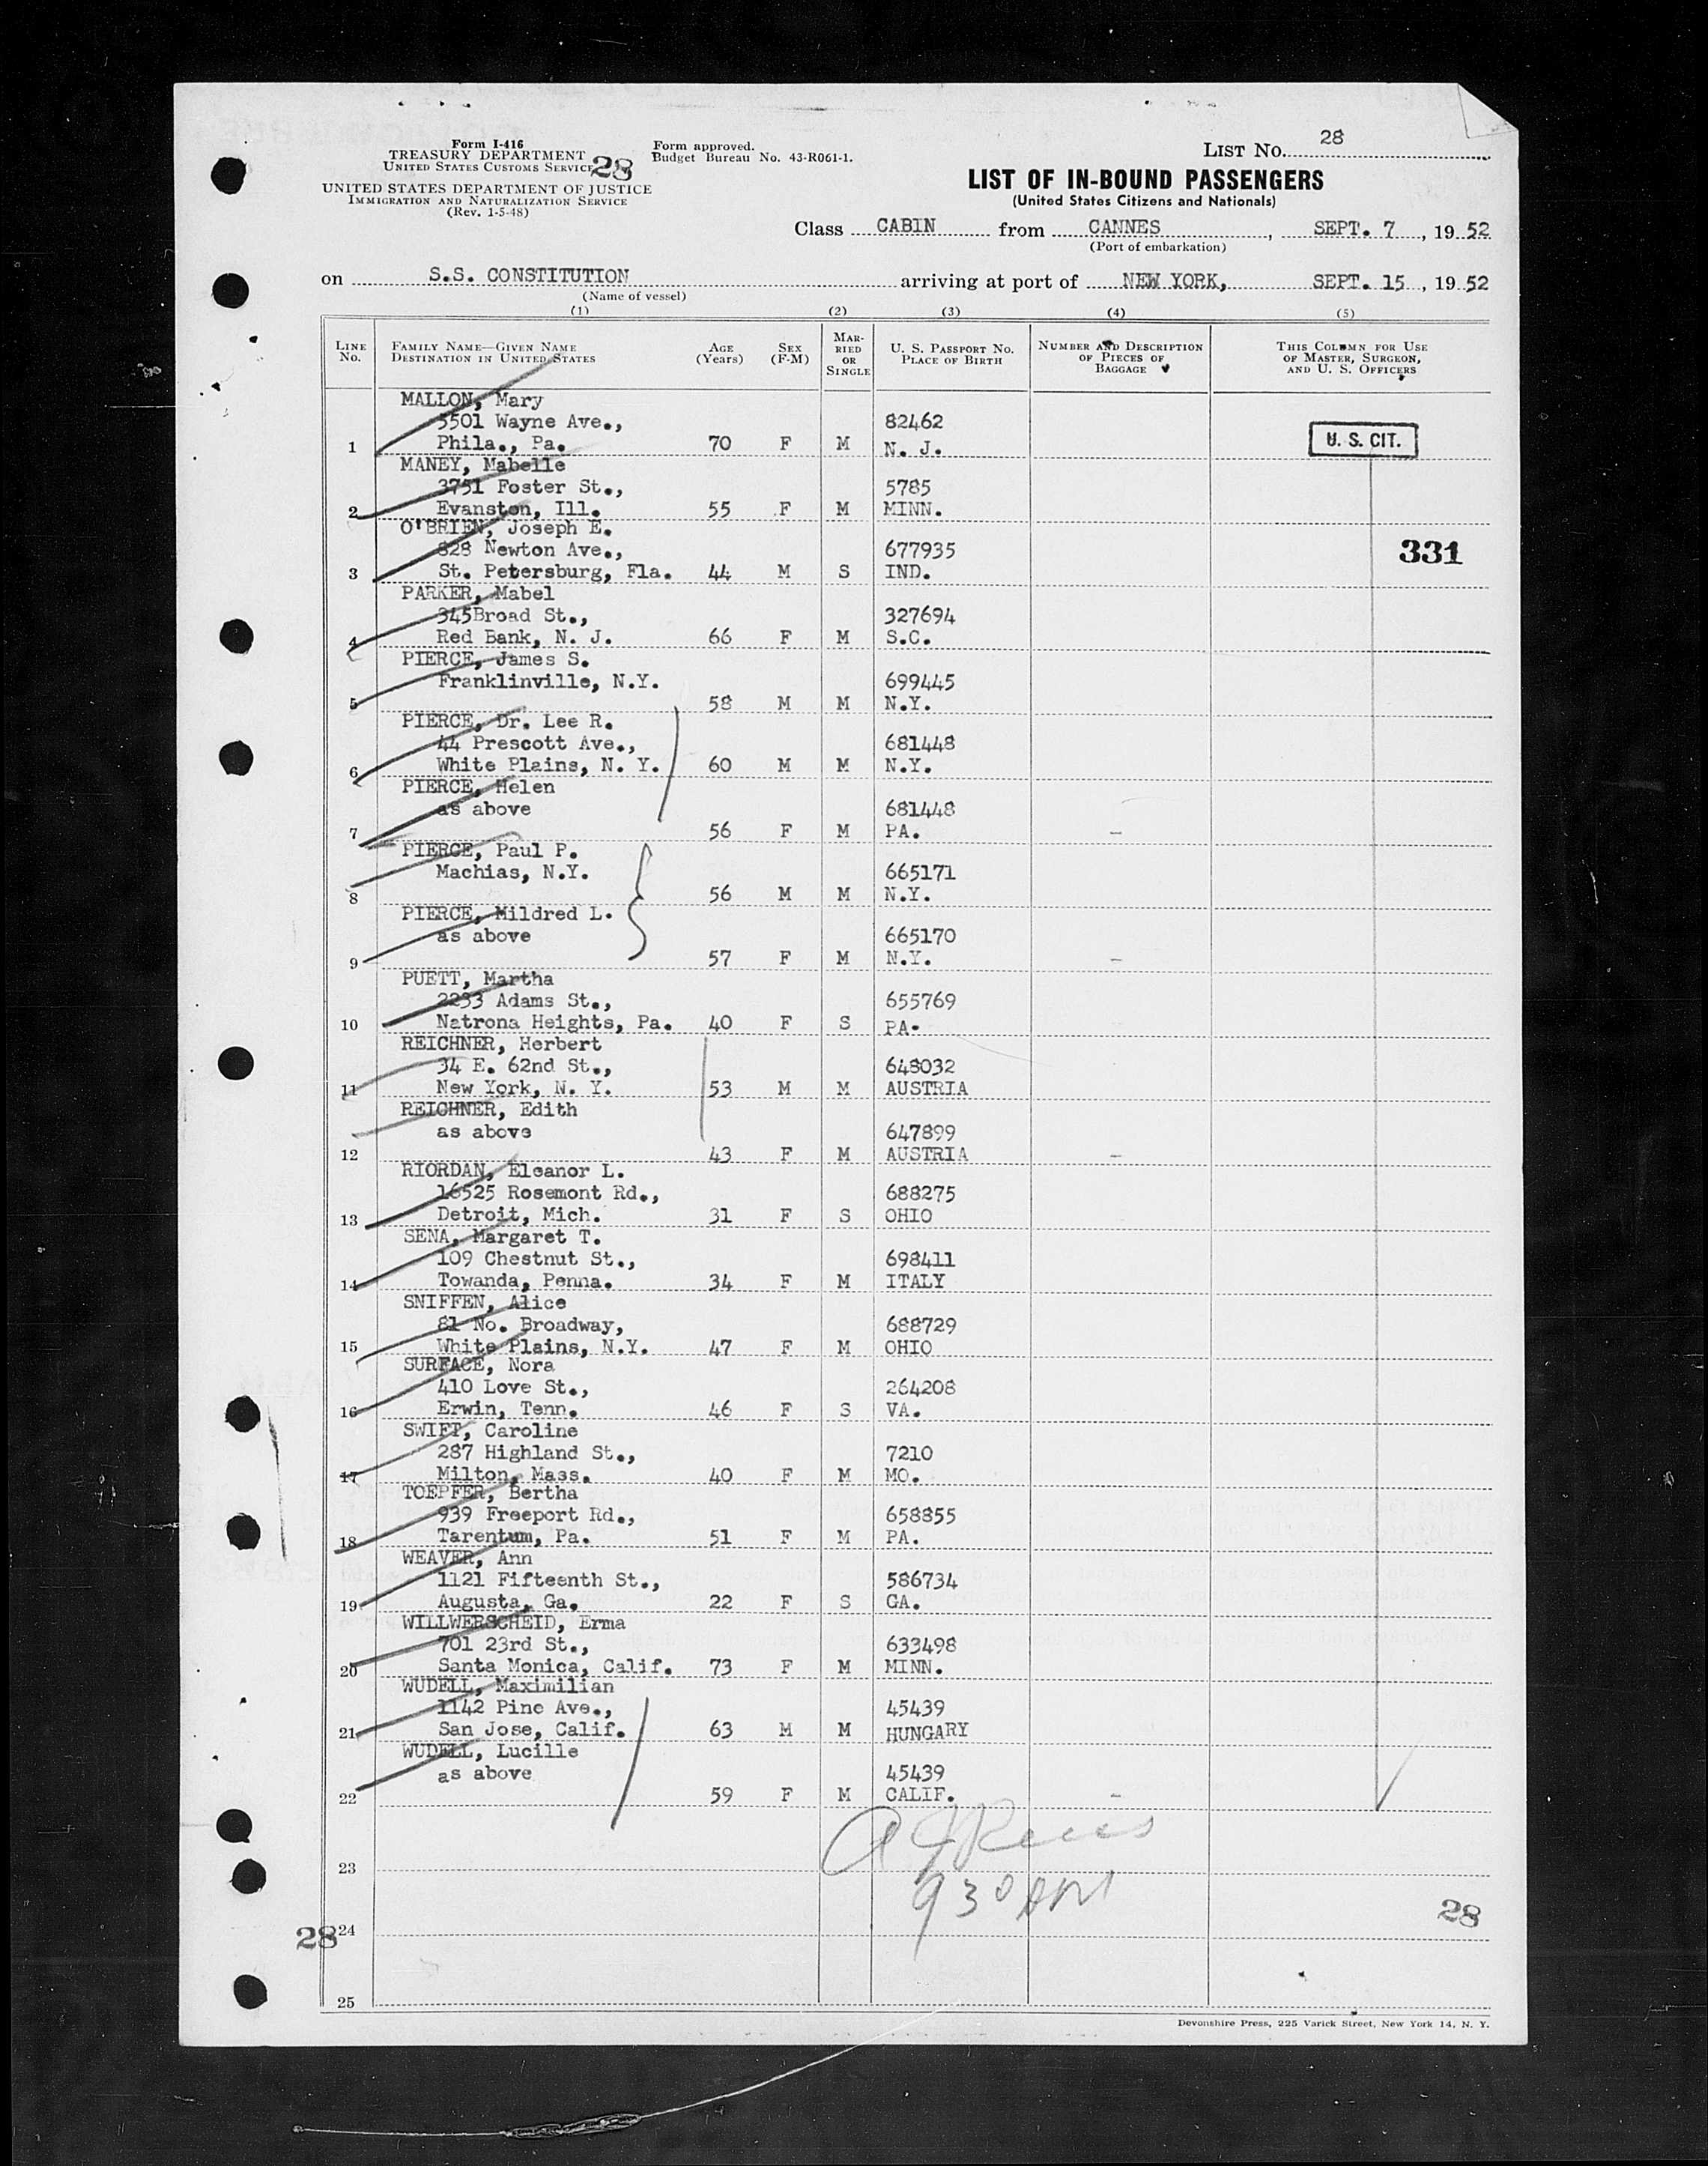 Form I-416
TREASURY DEPARTMENT
UNITED STATES CUSTOMS SERVICE
28
UNITED STATES DEPARTMENT OF JUSTICE
IMMIGRATION AND NATURALIZATION SERVICE
(Rev. 1-5-48)
Form approved.
Budget Bureau No. 43-R061-1.
LIST NO. 28
LIST OF IN-BOUND PASSENGERS
(United States Citizens and Nationals)
Class CABIN from CANNES, SEPT. 7, 1952
(Port of embarkation)
on S.S. CONSTITUTION arriving at port of NEW YORK, SEPT. 15, 1952
(Name of vessel)
(1) (2) (3) (4) (5)
LINE NO. FAMILY NAME—GIVEN NAME DESTINATION IN UNITED STATES AGE (Years) SEX (F-M) MARRIED OR SINGLE U. S. PASSPORT NO. PLACE OF BIRTH NUMBER AND DESCRIPTION OF PIECES OF BAGGAGE THIS COLUMN FOR USE OF MASTER, SURGEON, AND U. S. OFFICERS
MALLON, Mary
5501 Wayne Ave., 82462
1 Phila., Pa. 70 F M N. J. U. S. CIT.
MANEY, Mabelle
3751 Foster St., 5785
2 Evanston, Ill. 55 F M MINN.
O'BRIEN, Joseph E.
828 Newton Ave., 677935 331
3 St. Petersburg, Fla. 44 M S IND.
PARKER, Mabel
345Broad St., 327694
4 Red Bank, N. J. 66 F M S.C.
PIERCE, James S.
Franklinville, N.Y. 699445
5 58 M M N.Y.
PIERCE, Dr. Lee R.
44 Prescott Ave., 681448
6 White Plains, N. Y. 60 M M N.Y.
PIERCE, Helen
as above 681448
7 56 F M PA. –
PIERCE, Paul P.
Machias, N.Y. 665171
8 56 M M N.Y.
PIERCE, Mildred L.
as above 665170
9 57 F M N.Y. –
PUETT, Martha
2233 Adams St., 655769
10 Natrona Heights, Pa. 40 F S PA.
REICHNER, Herbert
34 E. 62nd St., 648032
11 New York, N. Y. 53 M M AUSTRIA
REICHNER, Edith
as above 647899
12 43 F M AUSTRIA –
RIORDAN, Eleanor L.
16525 Rosemont Rd., 688275
13 Detroit, Mich. 31 F S OHIO
SENA, Margaret T.
109 Chestnut St., 698411
14 Towanda, Penna. 34 F M ITALY
SNIFFEN, Alice
81 No. Broadway, 688729
15 White Plains, N.Y. 47 F M OHIO
SURFACE, Nora
410 Love St., 264208
16 Erwin, Tenn. 46 F S VA.
SWIFT, Caroline
287 Highland St., 7210
17 Milton, Mass. 40 F M MO.
TOEPFER, Bertha
939 Freeport Rd., 658855
18 Tarentum, Pa. 51 F M PA.
WEAVER, Ann
1121 Fifteenth St., 586734
19 Augusta, Ga. 22 F S GA.
WILLWERSCHEID, Erma
701 23rd St., 633498
20 Santa Monica, Calif. 73 F M MINN.
WUDELL, Maximilian
1142 Pine Ave., 45439
21 San Jose, Calif. 63 M M HUNGARY
WUDELL, Lucille
as above 45439
22 59 F M CALIF. –
23
930 AM
28
28 24
25
Devonshire Press, 225 Varick Street, New York 14, N. Y.